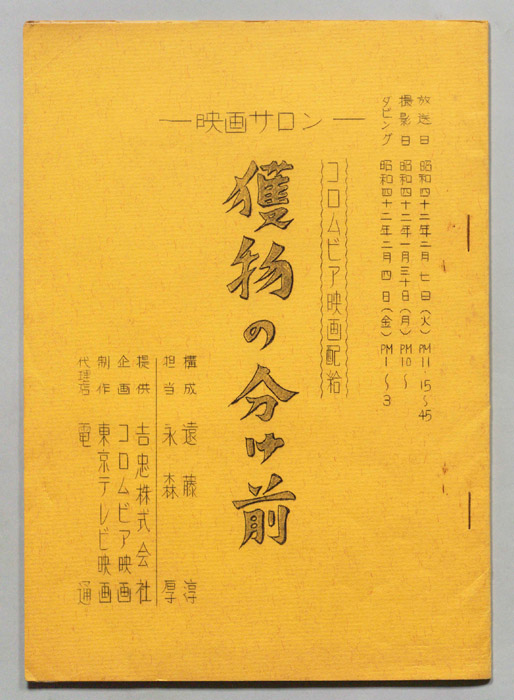 放送日 昭和四十二年二月七日(火)PM11・15~45
撮影日 昭和四十二年一月三十日(月)PM10~
ダビング 昭和四十二年二月四日(金)PM1~3
―映画サロン―
コロムビア映画配給
獲物の分け前
構成 遠藤淳
担当 永森厚
提供 吉忠株式会社
企画 コロムビア映画
制作 東京テレビ映画
代理店 電通